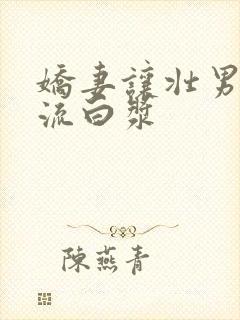 嬌妻讓壯男
流白漿
陳燕青